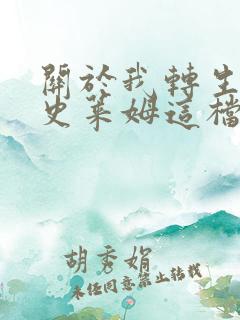 關於我轉生
史萊姆這檔
胡秀娟
未經同意禁止轉載